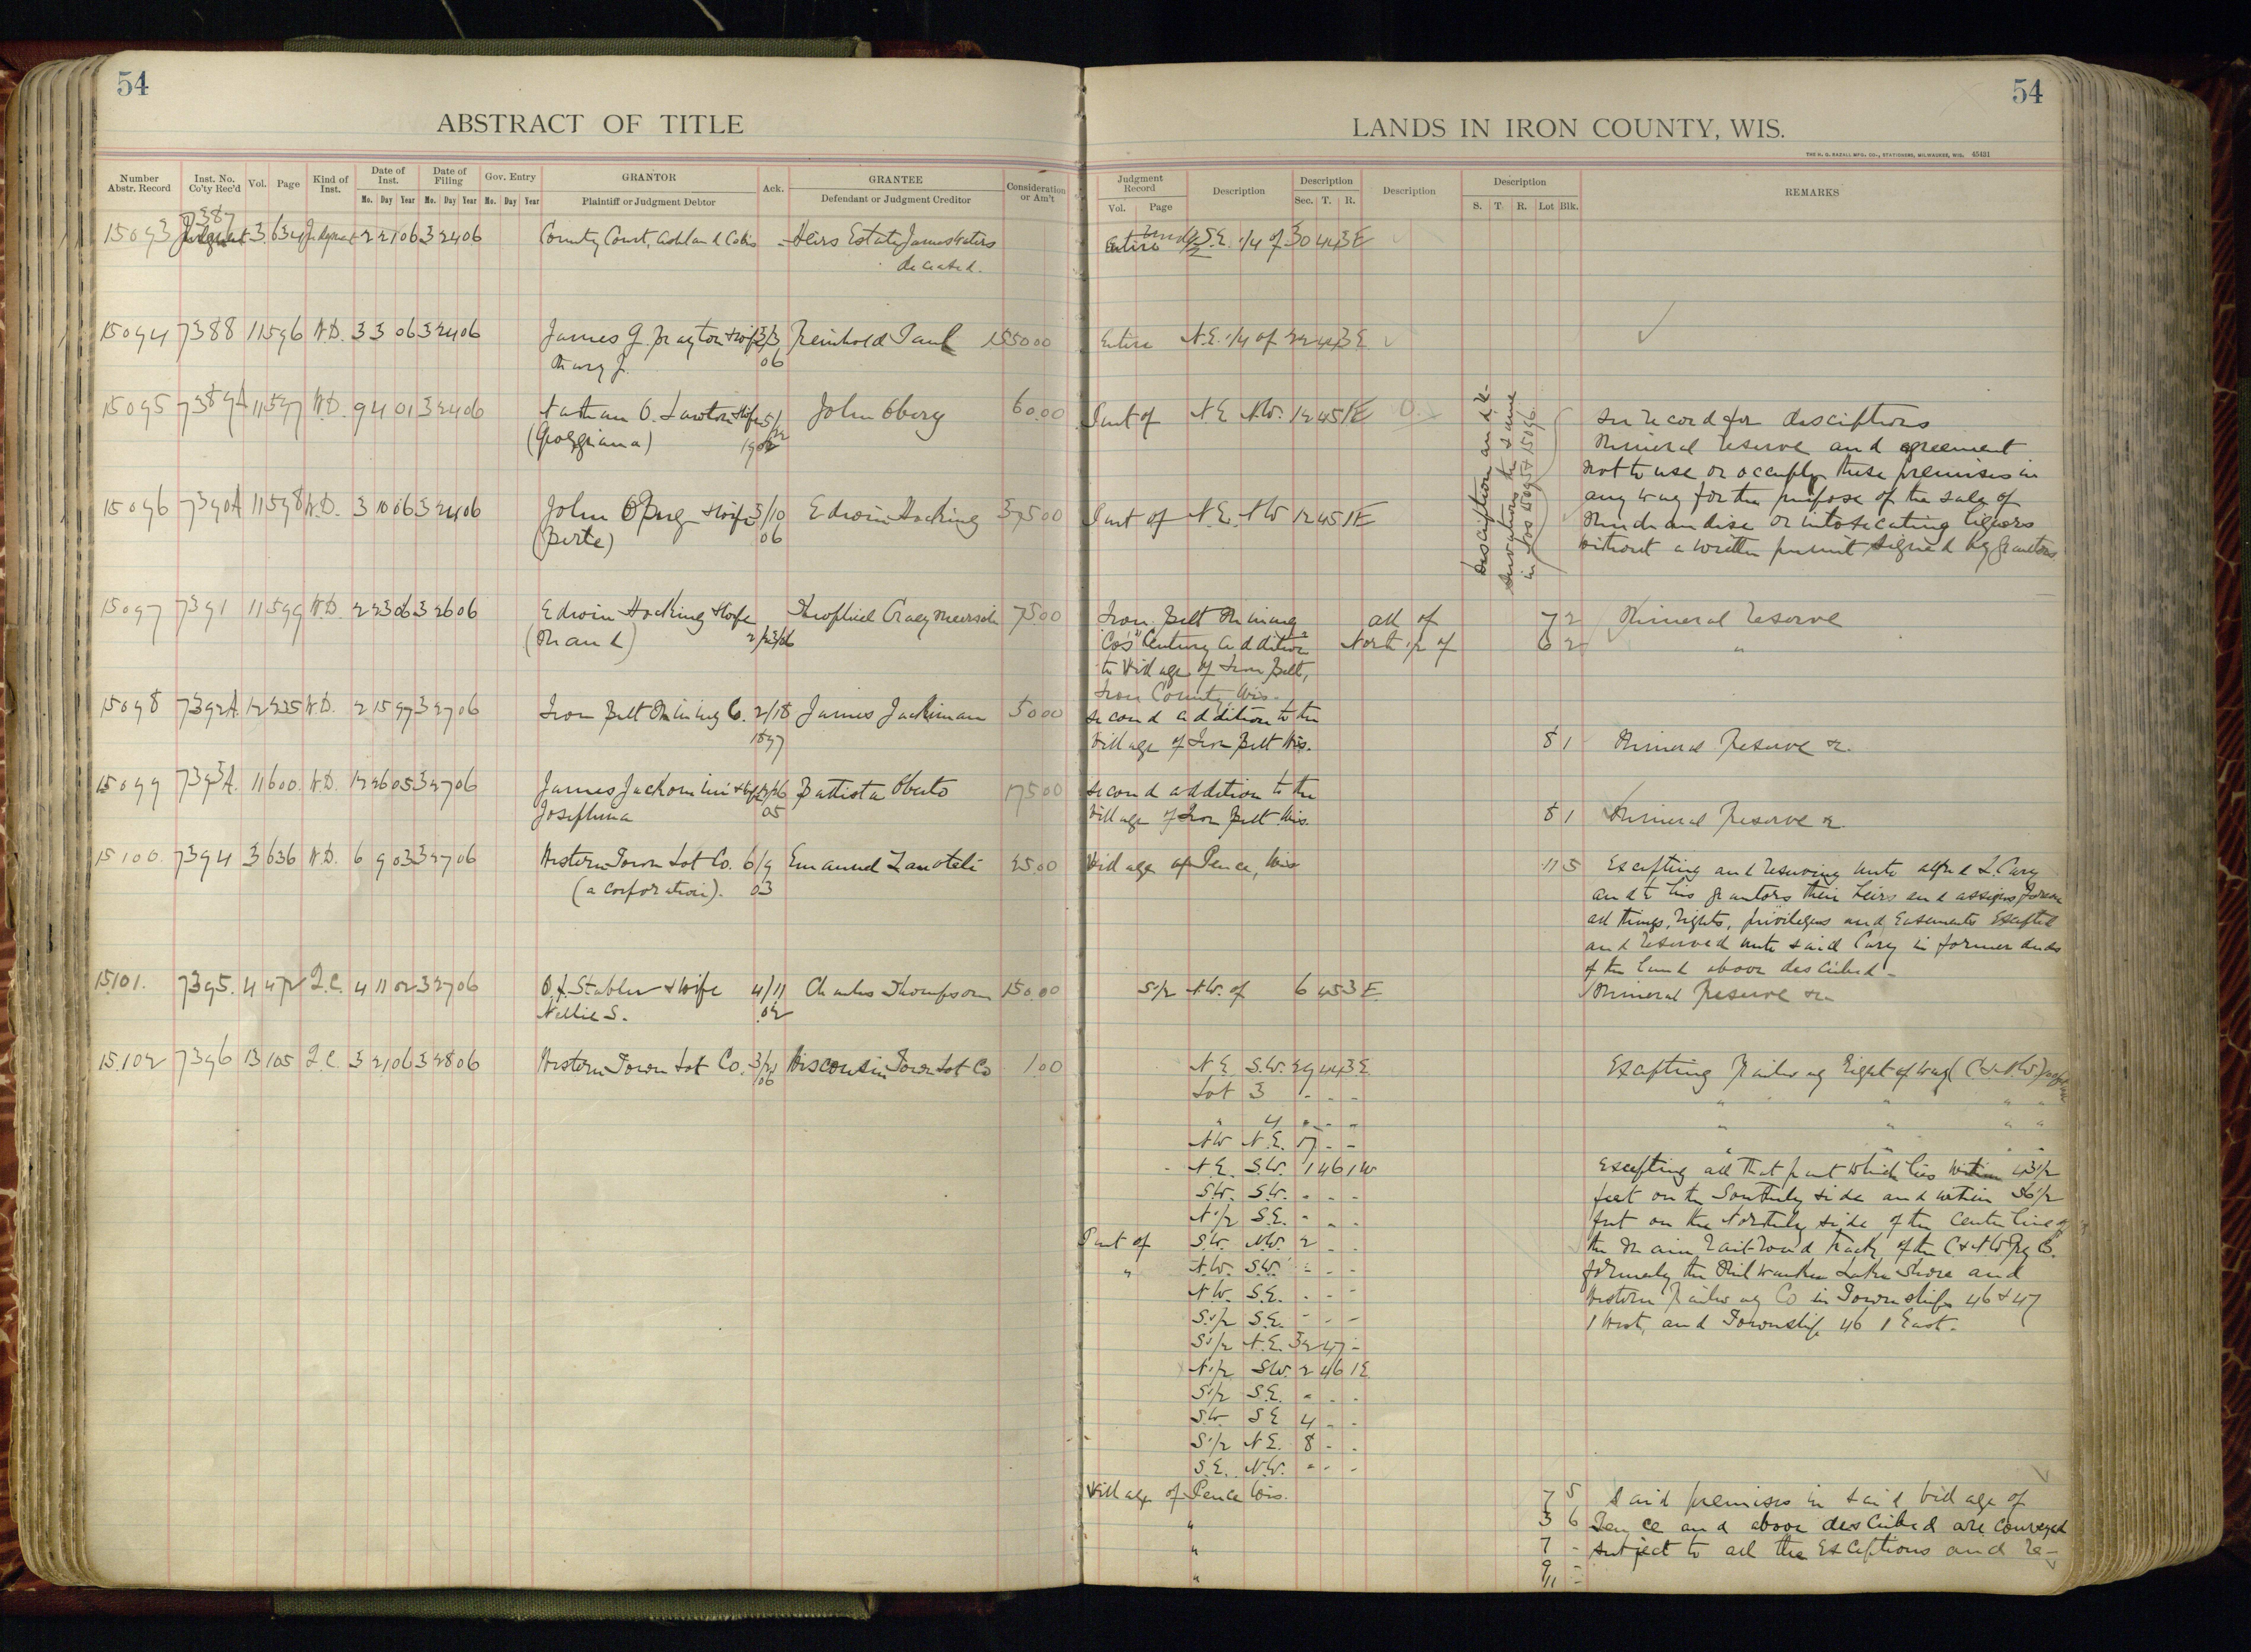 54
ABSTRACT OF TITLE
Number Abstr. Record
Inst. No. Co'ty Rec'd
Vol.
Page
Kind of Inst.
Date of Inst.
Mo. Day Year
Date of Filing
Mo. Day Year
Gov. Entry
Mo. Day Year
GRANTOR
Plaintiff or Judgment Debtor
Ack.
GRANTEE
Defendant or Judgment Creditor
Consideration or Am't
7387
15093 3 634 Judgment 2 21 06 3 24 06 County Court, Ashland Co Wis - Heirs Estate James Waters
deceased.
15094 7388 11 596 W.D. 3 3 06 3 24 06 James J. & Wife 3/3 Reinhold Paul 1550 00
Mary J. 06
15095 7389A 11 597 W.D. 9 4 01 3 24 06 Nathan O. Lawton & Wife John Oberg 60.00
(Georgiana)
15096 7390A 11 598 W.D. 3 10 06 3 24 06 John Oberg & Wife 3/10 Edwin Hocking 375 00
(Berte) 06
15097 7391 11 599 W.D. 2 23 06 3 26 06 Edwin Hocking & Wife 75.00
(Maud) 2/23/06
15098 7392A. 12 235 W.D. 2 15 97 3 27 06 Iron Belt Mining Co. 2/18 James Jackiman 50 00
1897
15099 7393A. 11 600 W.D. 12 26 05 3 27 06 James Jackomini & Wife 12/26 Battista Oberto 175 00
Josephina 05
15100. 7394 3 636 W.D. 6 9 03 3 27 06 Western Town Lot Co. 6/9 Emanuel Zanoteli 25.00
(a corporation). 03
15101. 7395. 4 472 Q.C. 4 11 02 3 27 06 O.J. Stabler & Wife 4/11 Charles Thompson 150.00
Nellie S. 02
15102 7396 13 105 Q.C. 3 21 06 3 28 06 Western Town Lot Co. 3/21 Wisconsin Town Lot Co 1.00
06
54
LANDS IN IRON COUNTY, WIS.
THE H. N. RAZALL MFG. CO., STATIONERS, MILWAUKEE, WIS. 45431
Judgment Record
Vol. Page
Description
Description
Sec. T. R.
Description
Description
S. T. R. Lot Blk.
REMARKS
Und 1/2 S.E. 1/4 of 30 44 3E
Entire N.E. 1/4 of 22 44 3E
Part of N.E. N.W. 12 45 1E
Part of N.E. NW 12 45 1E
Description and re-
servations the same
in Nos 15095 & 15096
See record for descriptions
Mineral reserve and agreement
not to use or occupy these premises in
any way for the purpose of the sale of
Merchandise or intoxicating liquors
without a written permit signed by Grantors
Iron Belt Mining all of 7 2 Mineral reserve
Co's "Century addition" North 1/2 of 6 2 "
to Village of Iron Belt,
Iron County, Wis.
Second addition to the
Village of Iron Belt Wis. 8 1 Mineral Reserve &.
Second addition to the
Village of Iron Belt Wis. 8 1 Mineral Reserve &.
Village of Pence, Wis 11 5 Excepting and reserving unto Alfred L. Cary
and to his grantors their heirs and assigns forever
all things, rights, privileges and Easements Excepted
and reserved unto said Cary in former deeds
of the land above described -
S 1/2 N.W. of 6 45 3E. Mineral Reserve &c
N.E. S.W. 29 44 3E Excepting Railway Right of Way (C & N.W.)
Lot 3 - - - " " " "
" 4 - - - " " " "
NW N.E. 17 - - " " " "
N.E. S.W. 1 46 1W Excepting all that part which lies within 43 1/2
S.W. S.W. - - - feet on the Southerly side and within 56 1/2
N 1/2 S.E. - - - feet on the Northerly side of the Center line of
Part of S.W. N.W. 2 - - the Main railroad track, of the C & N W Ry Co.
" N.W. S.W. - - - formerly the Milwaukee Lake Shore and
N.W. S.E. - - - Western Railway Co in Townships 46 & 47
S 1/2 S.E. - - - 1 West, and Township 46 1 East.
S 1/2 N.E. 32 47 -
N 1/2 S.W. 2 46 1E
S 1/2 S.E. - - -
S.W. S.E 4 - -
S 1/2 N.E. 8 - -
S.E. N.W. - - -
Village of Pence Wis. 7 5 Said premises in said village of
" 3 6 Pence and above described are conveyed
" 7 - subject to all the exceptions and re-
" 9 -
11 -